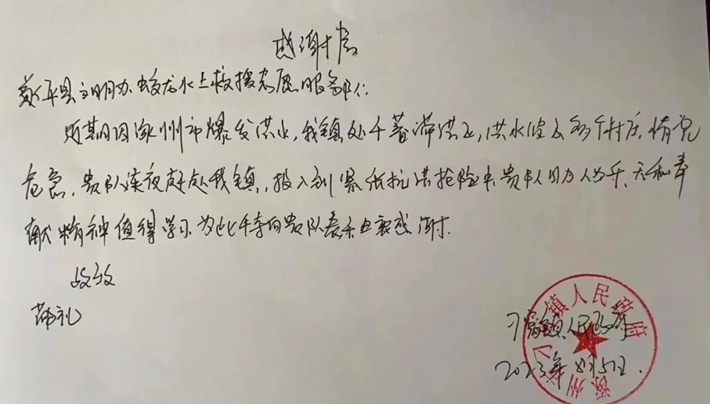 感谢信
新平县文明办蛟龙水上救援志愿服务队:
近期因涿州市爆发洪水,我镇处于蓄滞洪区,洪水波及多个村庄,情况
危急,贵队连夜赶赴我镇,投入到紧张抗洪抢险中,贵队助力人为乐、无私奉
献精神值得学习,为此专向贵队表示由衷感谢.
此致
敬礼
刁窝镇人民政府
2023年8月5日.
镇人民政府
涿州